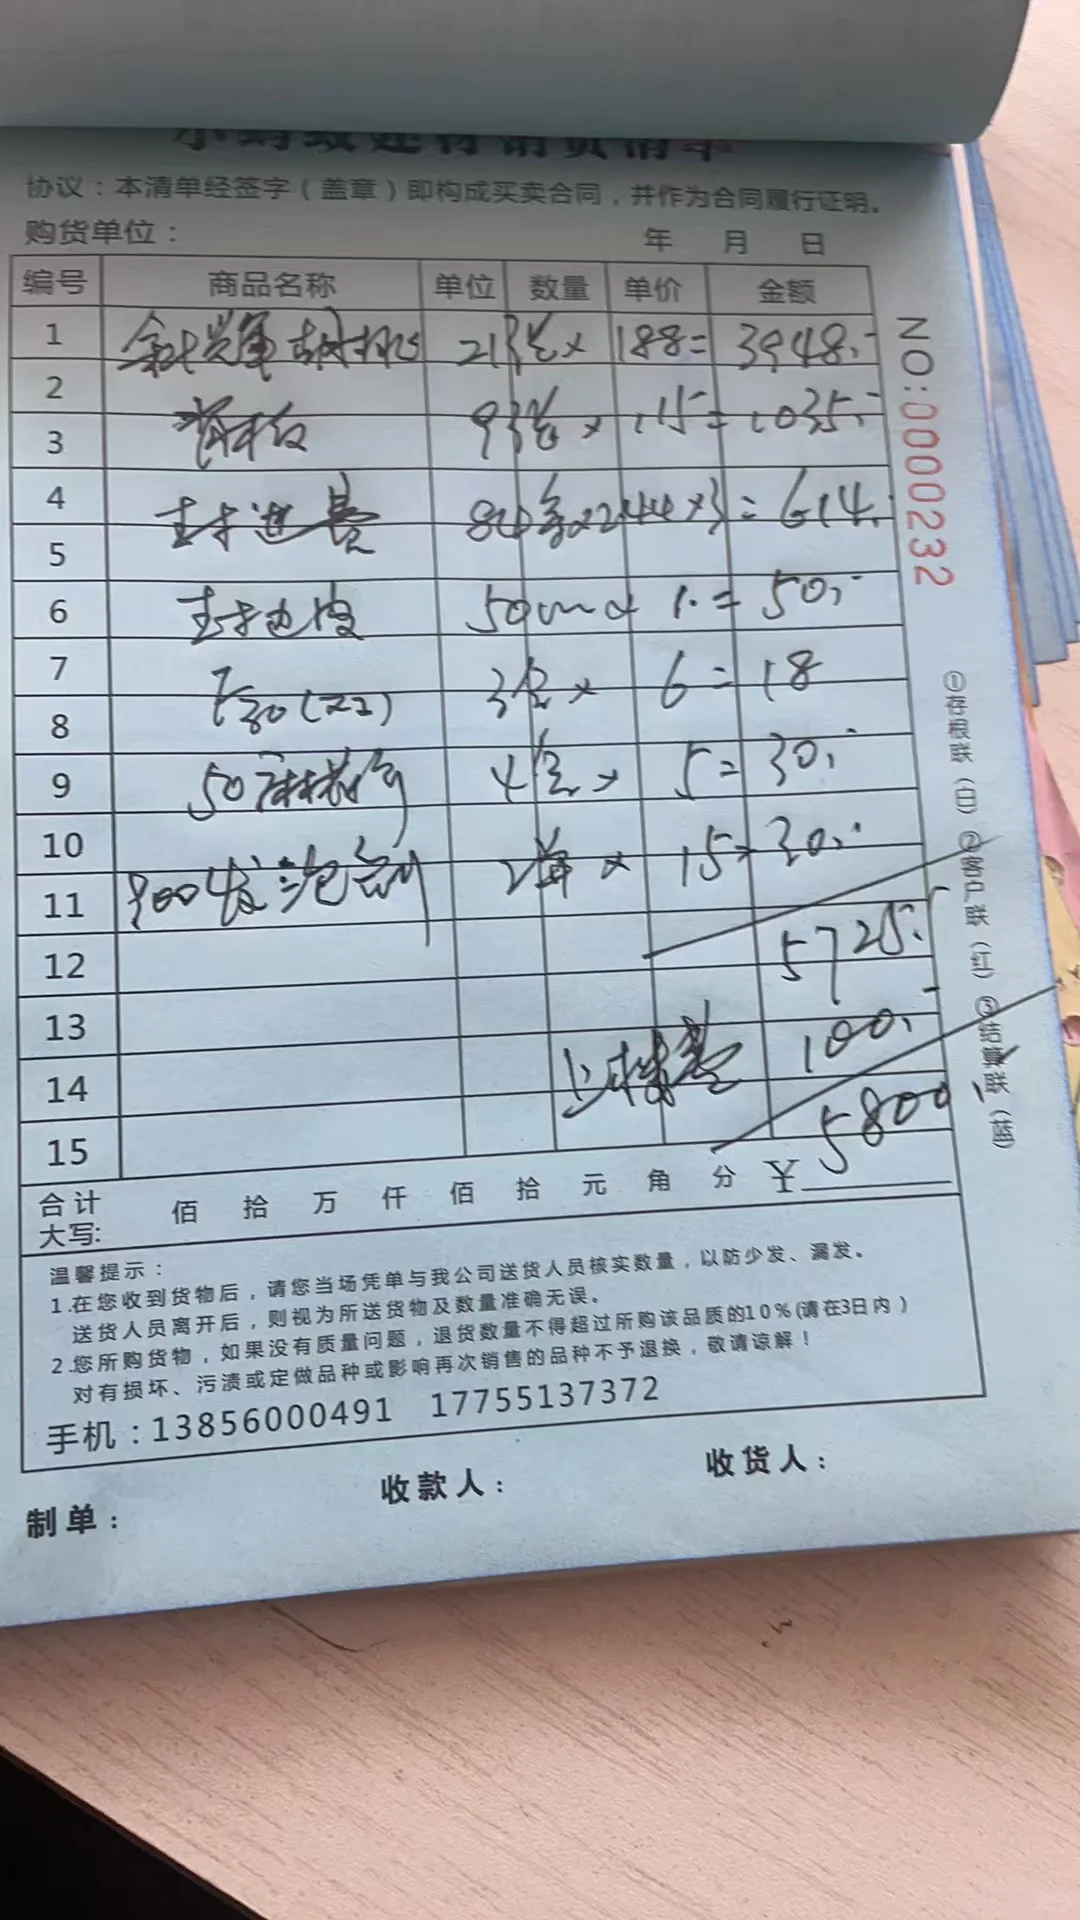 协议：本清单经签字（盖章）即构成买卖合同，并作为合同履行证明。
购货单位： 年 月 日
编号 商品名称 单位 数量 单价 金额
1 21张× 188= 3948.-
2
3 背板 9张× 115= 1035.-
4 封边费 84条×2.44×3= 614.
5
6 封边皮 50m× 1.= 50.-
7 F30(22) 3盒× 6= 18
8
9 50 4盒× 5= 30.-
10
11 900发泡剂 2瓶× 15= 30.-
12 5725.-
13
14 上楼费 100.-
15 5800.
合计大写: 佰 拾 万 仟 佰 拾 元 角 分 ￥
温馨提示：
1.在您收到货物后，请您当场凭单与我公司送货人员核实数量，以防少发、漏发。
送货人员离开后，则视为所送货物及数量准确无误。
2.您所购货物，如果没有质量问题，退货数量不得超过所购该品质的10%(请在3日内)
对有损坏、污渍或定做品种或影响再次销售的品种不予退换，敬请谅解！
手机：13856000491 17755137372
制单： 收款人： 收货人：
NO:0000232
①存根联（白）②客户联（红）③结算联（蓝）